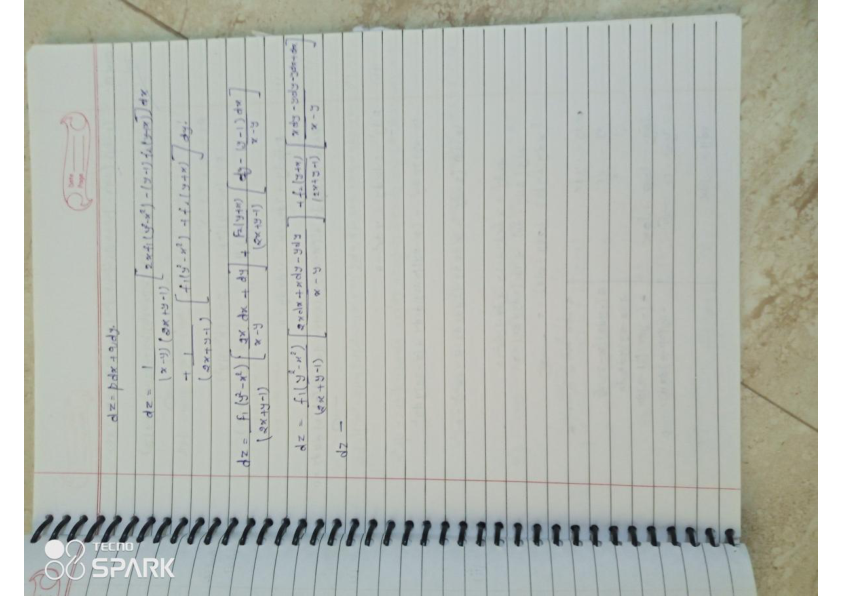 dz = pdx + q dy.
dz = 1 / (x-y)(2x+y-1) [2x f1(y²-x²) - (y-1) f2(y+x)] dx
+ 1 / (2x+y-1) [f1(y²-x²) + f2(y+x)] dy.
dz = f1(y²-x²) / (2x+y-1) [2x dx / x-y + dy] + f2(y+x) / (2x+y-1) [dy - (y-1) dx / x-y]
dz = f1(y²-x²) / (2x+y-1) [2xdx + xdy - ydy / x-y] + f2(y+x) / (2x+y-1) [xdy - ydy - ydx + dx / x-y]
dz —
TECNO
SPARK